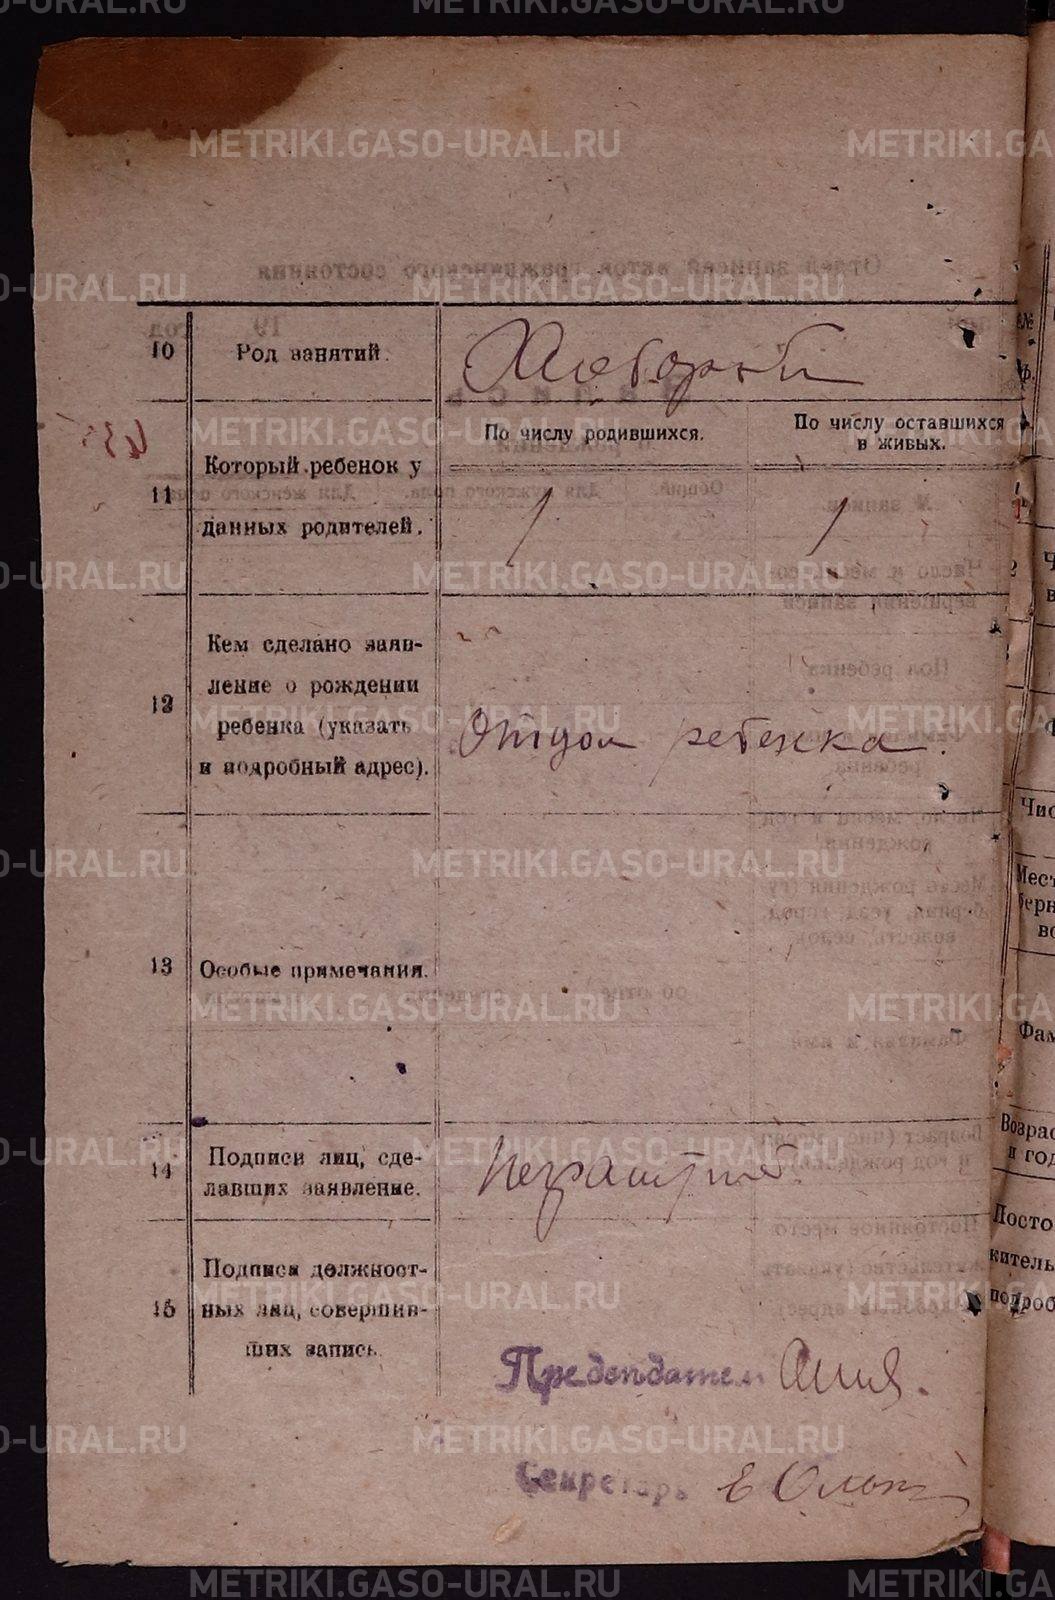 METRIKI.GASO-URAL.RU
10 Род занятий.
11 Который ребенок у
данных родителей.
По числу родившихся.
По числу оставшихся
в живых.
1 1
12 Кем сделано заяв-
ление о рождении
ребенка (указать
и подробный адрес).
Отцом ребенка.
13 Особые примечания.
14 Подписи лиц, сде-
лавших заявление.
Неграмотный.
15 Подписи должност-
ных лиц, совершив-
ших запись.
Председатель
Секретарь
Чис
Мест
берн
Фам
Возрас
и год
Посто
житель
подроб